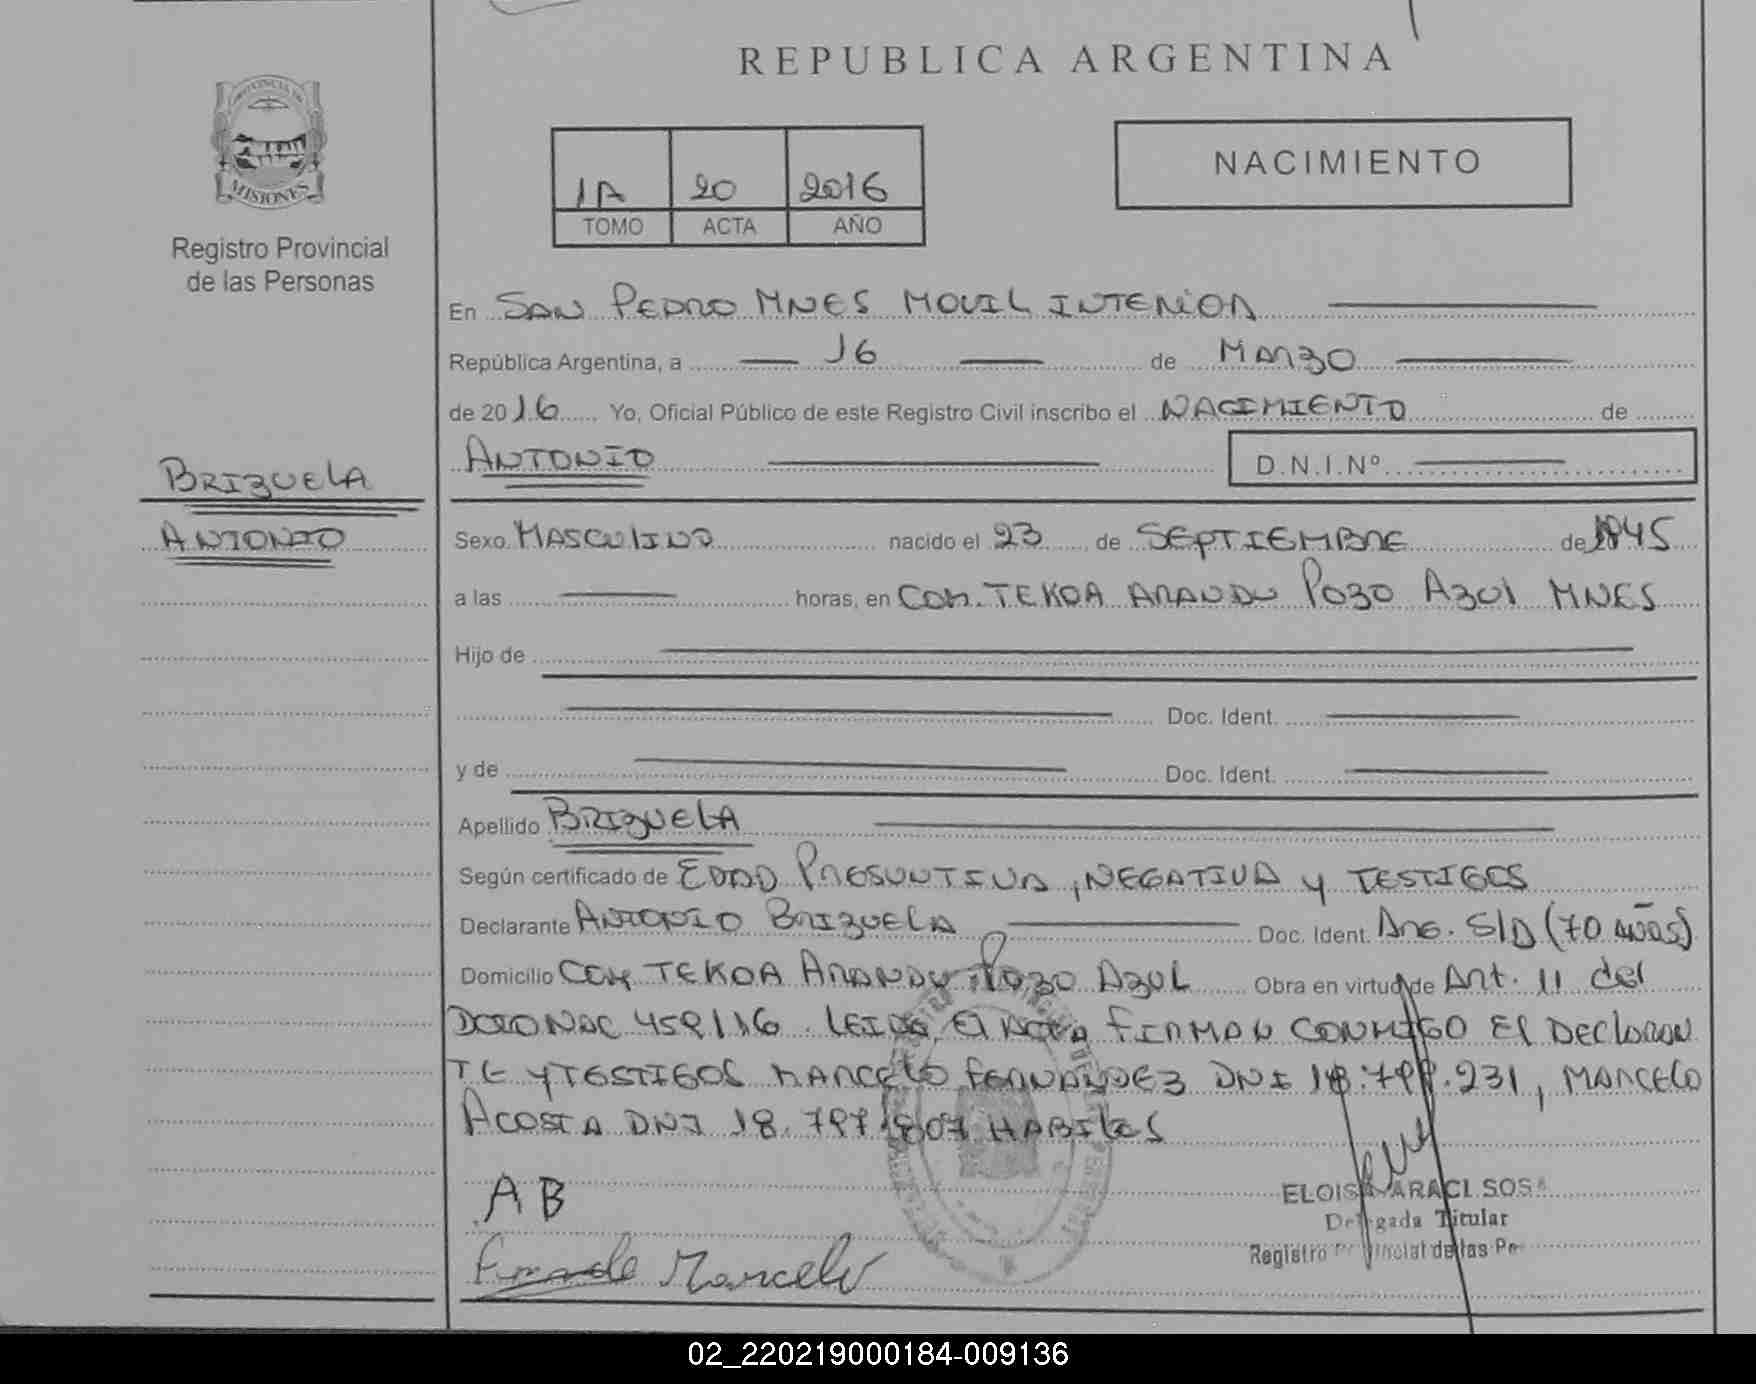 REPUBLICA ARGENTINA
PROVINCIA DE
MISIONES
Registro Provincial
de las Personas
1A 20 2016
TOMO ACTA AÑO
NACIMIENTO
En SAN PEDRO MNES MOVIL INTERIOR
República Argentina, a 16 de MARZO
de 2016 Yo, Oficial Público de este Registro Civil inscribo el NACIMIENTO de
ANTONIO D.N.I.Nº
BRIZUELA
ANTONIO
Sexo MASCULINO nacido el 23 de SEPTIEMBRE de 1945
a las horas, en COM. TEKOA ARANDU POZO AZUL MNES
Hijo de
Doc. Ident.
y de Doc. Ident.
Apellido BRIZUELA
Según certificado de EDAD PRESUNTIVA, NEGATIVA y TESTIGOS
Declarante ANTONIO BRIZUELA Doc. Ident. ARG. S/D (70 AÑOS)
Domicilio COM TEKOA ARANDU POZO AZUL Obra en virtud de Art. 11 del
LEIDA EL ACTA FIRMAN CONMIGO EL DECLARAN
TE y TESTIGOS MARCELO FERNANDEZ DNI, MARCELO
ACOSTA DNI 18.797.807 HABILES
AB
Marcelo
ELOISA ARACI SOSA
Delegada Titular
Registro Provincial de las Pe
02_220219000184-009136